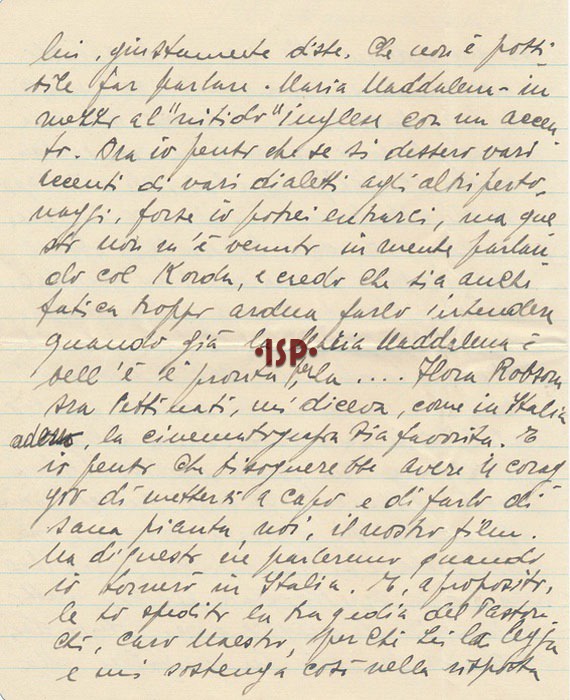 lui, giustamente disse. Che non è possi
bile far parlare. Maria Maddalena - in
mezzo al "nitido" inglese con un accen
to. Ora io penso che se si dessero vari
accenti di vari dialetti agli altri perso
naggi, forse io potrei entrarci, ma que
sto non m'è venuto in mente parlan
do col Korda, e credo che sia anche
fatica troppo ardua farlo intendere
quando già la Maria Maddalena è
bell'è e pronta per la .... Flora Robson
Pettinati, mi diceva, come in Italia
adesso, la cinematografia sia favorita. E
io penso che bisognerebbe avere il corag
gio di mettersi a capo e di farlo di
sana pianta, noi, il nostro film.
Ma di questo ne parleremo quando
io tornerò in Italia. E, a proposito,
le ho spedito la tragedia del Paston
chi, caro Maestro, perchè Lei la legga
e mi sostenga così nella risposta
·ISP·